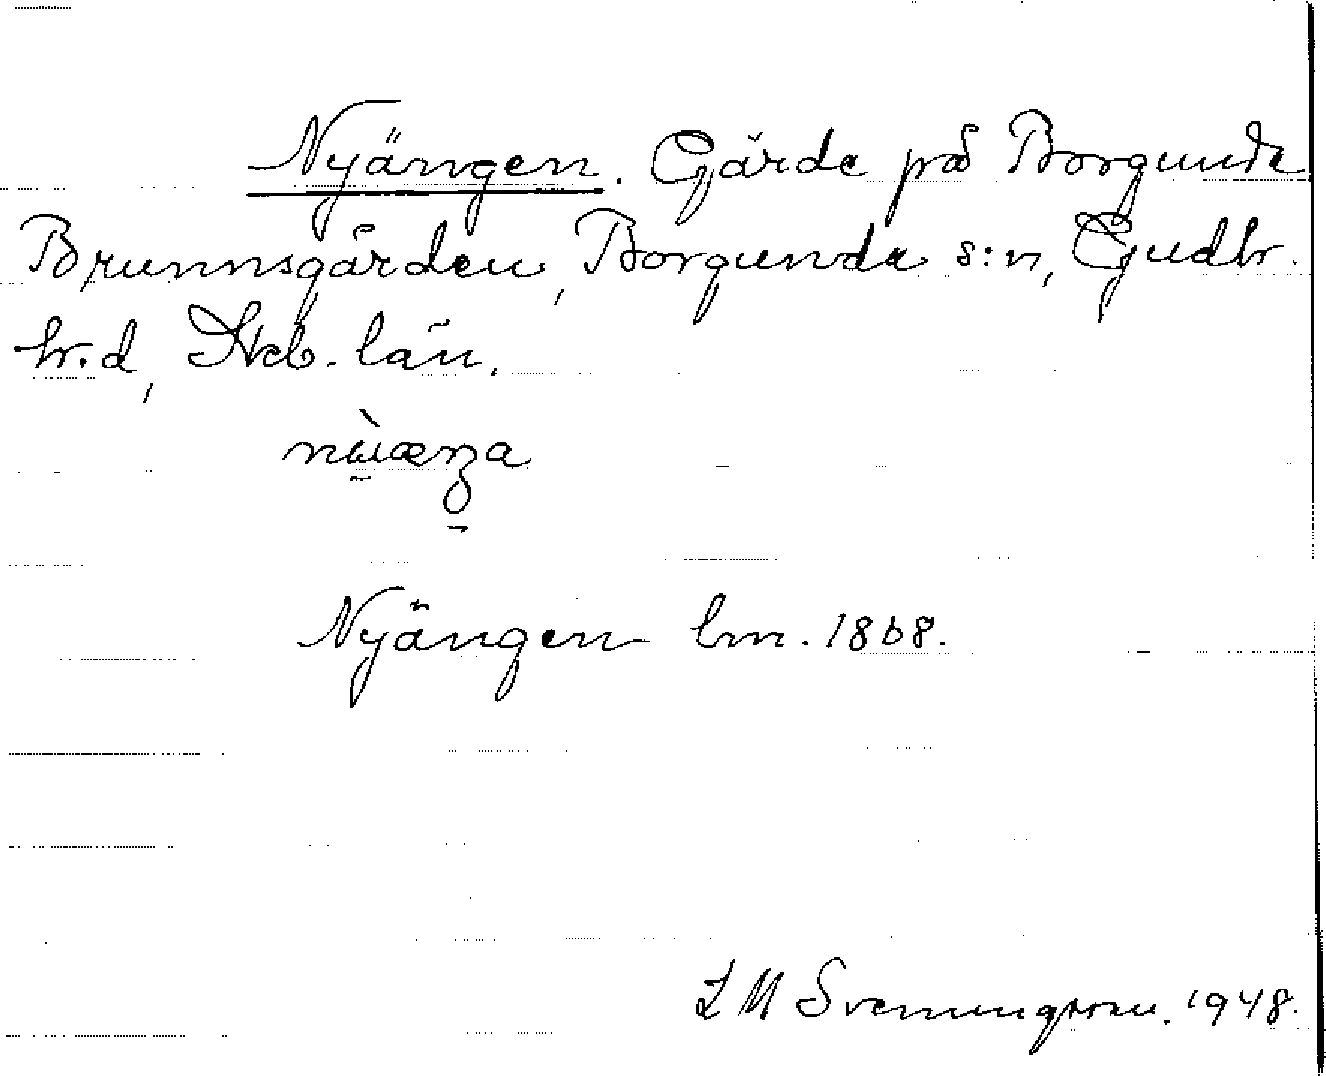 Nyängen. Gärde på Borgunda
Brunnsgården, Borgunda s:n, Gudhr.
hr.d, Skb. län.
Nyängen lm. 1868.
L M Svenungsson. 1948.